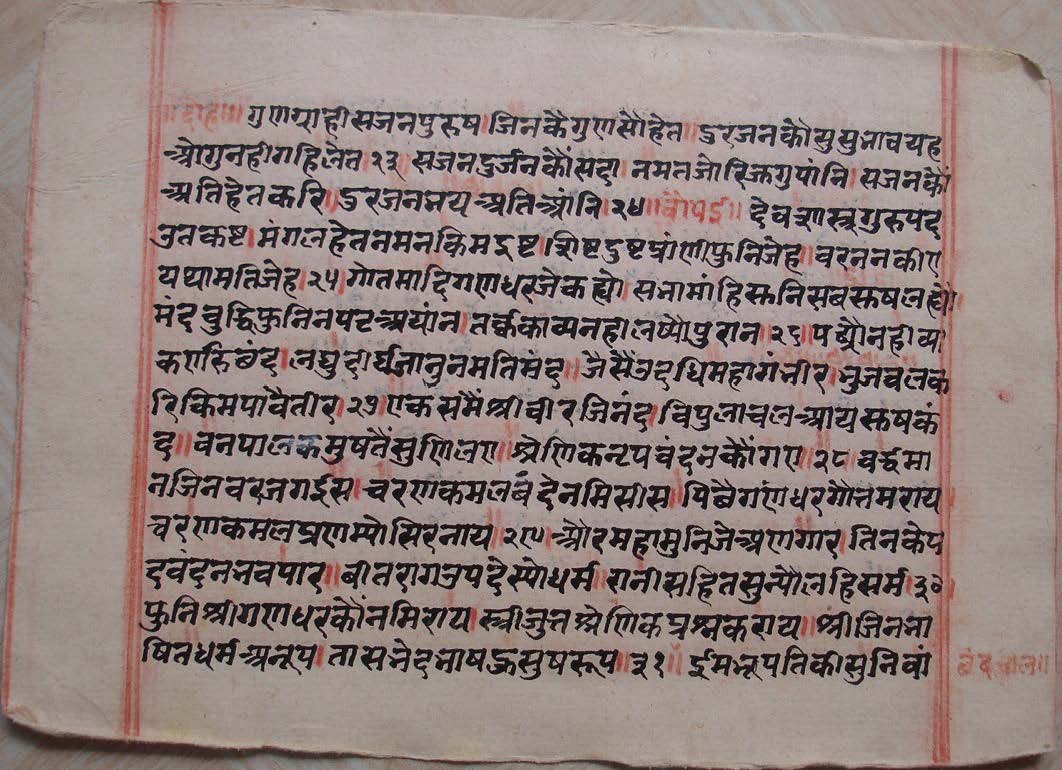 ॥दोहा॥ गुणग्राही सजन पुरुष । जिनकै गुण सौं हेत । दुरजन कौ सुसुभाव यह
औगुन ही गहि लेत २३ सजन दुर्जन कौं सदा । नमत जोरि जुग पांनि । सजन कौं
अति हेत करि । दुरजन भय अति आंनि २४ ॥चौपई॥ देव शास्त्र गुरु पद
उतकष्ट । मंगल हेत नमन किम इष्ट । शिष्ट दुष्ट प्रांणी फुनि जेह । वरनन कीए
यथामति जेह २५ गोतमादि गणधर जे कह्यो । सभा मांहि सुनि सब सुष लह्यो
मंद बुद्धि फुनि निपट अयांन । तर्क काव्य नही लष्यौ पुरान २६ पढ्यौ नही व्या
करणहि छंद । लघु दीर्घ जानु न मति मंद ॥ जैसैं उदधि महा गंभीर । भुज बल क
रि किम पावै तीर २७ एक समैं श्री वीर जिनंद । विपुलाचल आय सुष कं
द ॥ वनपालक मुष तैं सुणि लए । श्रेणिक नृप वंदन कौं गए २८ वर्द्धमा
न जिनवर जग ईस । चरण कमल वंदे नमि सीस । पिछै गणधर गौतम राय
चरण कमल प्रणम्यो सिर नाय २९ और महामुनि जे अणगार । तिनके प
द वंदन भव पार । वीतराग उपदेस्यो धर्म । रानी सहित सुन्यौ लहि सर्म ३०
फुनि श्री गणधर कौं नमि राय । स्त्री जुत श्रेणिक प्रश्न कराय ॥ श्री जिन भा
षित धर्म अनूप । ता स भेद भाषहु सुष रूप ३१ ॥ ईम भूपति की सुनि वां